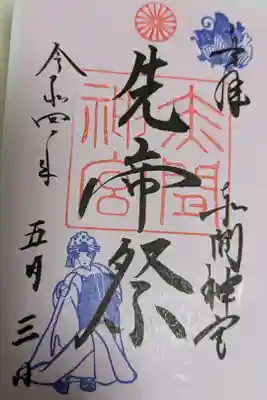 奉拝
赤間神宮
先帝祭
赤間
神宮
令和四年
五月三日